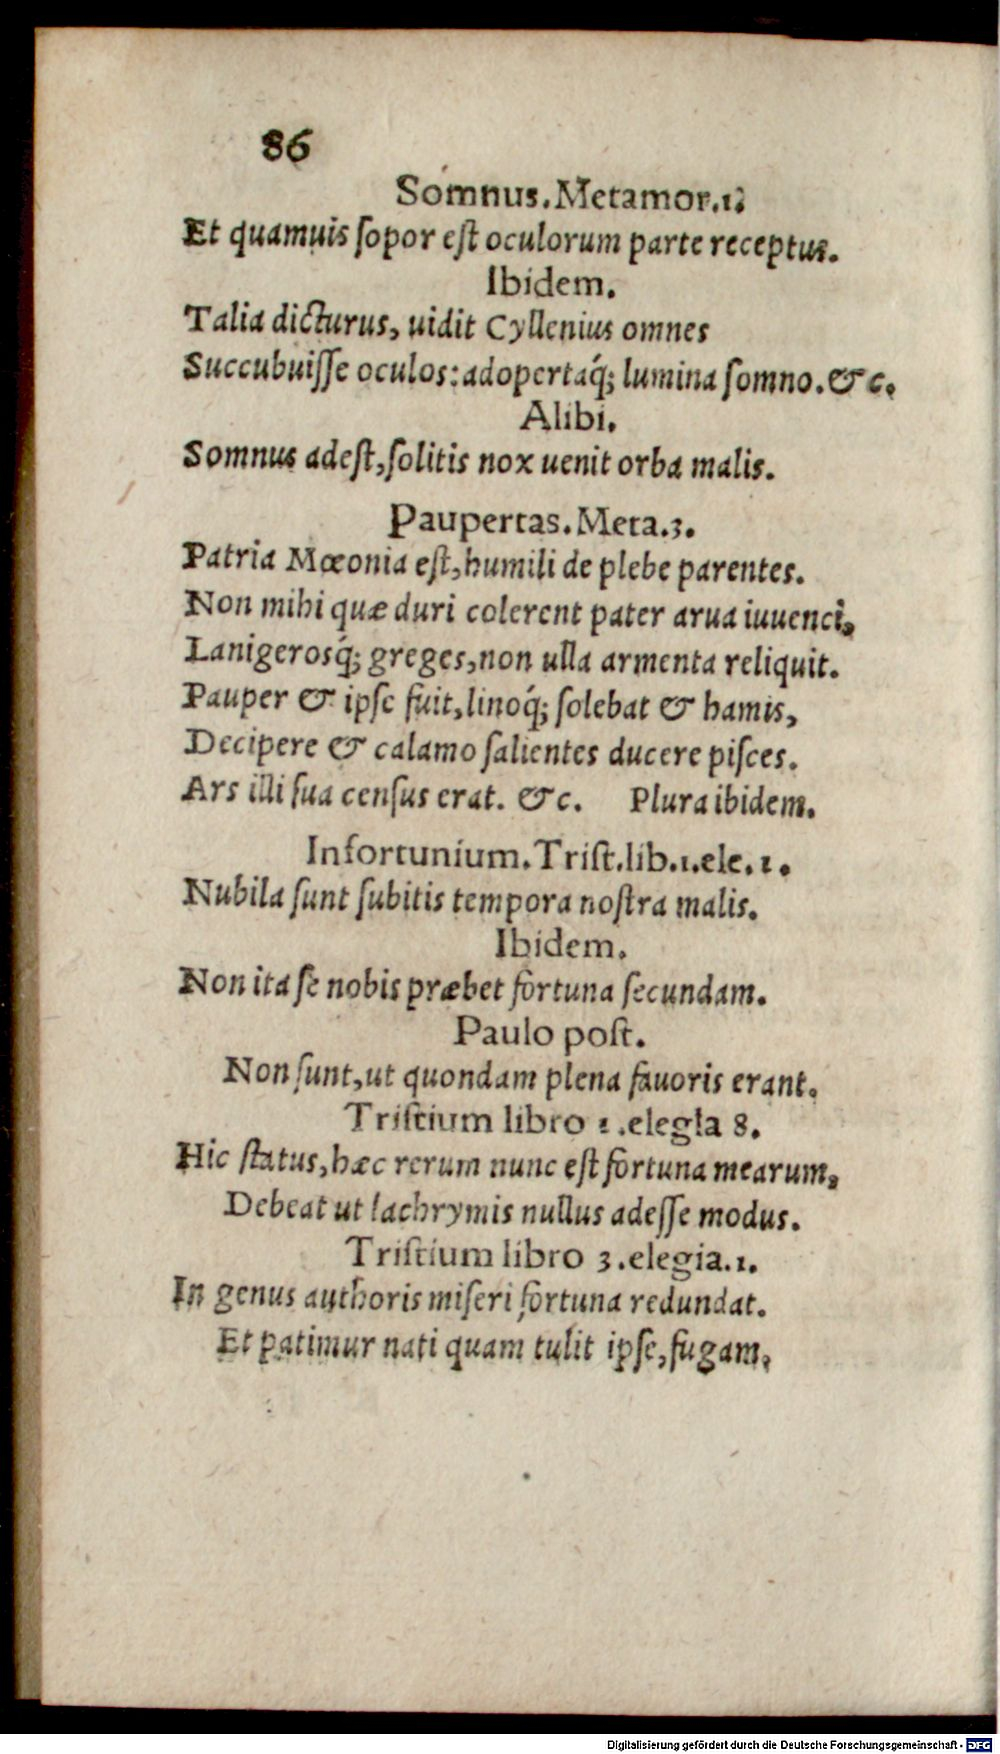 86
Somnus.Metamor.1.
Et quamuis ſopor eſt oculorum parte receptus.
Ibidem.
Talia dicturus, uidit Cyllenius omnes
Succubuiſſe oculos: adopertaq́; lumina ſomno. &c.
Alibi.
Somnus adeſt, ſolitis nox uenit orba malis.
Paupertas.Meta.3.
Patria Mœonia eſt, humili de plebe parentes.
Non mihi quæ duri colerent pater arua iuuenci,
Lanigerosq́; greges, non ulla armenta reliquit.
Pauper & ipſe fuit, linoq́; ſolebat & hamis,
Decipere & calamo ſalientes ducere piſces.
Ars illi ſua cenſus erat. &c. Plura ibidem.
Infortunium.Triſt.lib.1.ele.1.
Nubila ſunt ſubitis tempora noſtra malis.
Ibidem.
Non ita ſe nobis præbet fortuna ſecundam.
Paulo poſt.
Non ſunt, ut quondam plena fauoris erant.
Triſtium libro 1.elegia 8.
Hic ſtatus, hæc rerum nunc eſt fortuna mearum,
Debeat ut lachrymis nullus adeſſe modus.
Triſtium libro 3.elegia.1.
In genus authoris miſeri fortuna redundat.
Et patimur nati quam tulit ipſe, fugam,
Digitalisierung gefördert durch die Deutsche Forschungsgemeinschaft - DFG